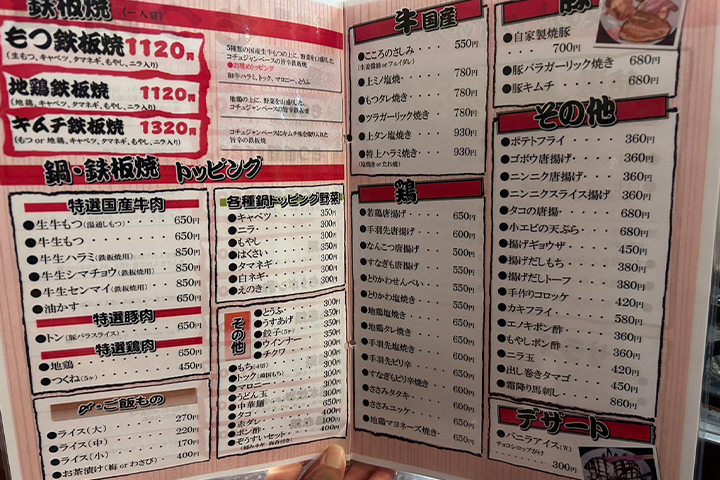 鉄板焼(一人前)
もつ鉄板焼1120円
(生もつ、キャベツ、タマネギ、もやし、ニラ入り)
地鶏鉄板焼1120円
(地鶏、キャベツ、タマネギ、もやし、ニラ入り)
キムチ鉄板焼1320円
(もつ or 地鶏、キャベツ、タマネギ、もやし、ニラ入り)
5種類の国産生牛もつの上に、野菜を山盛した、
コチュジャンベースの旨辛鉄板焼
●お奨めトッピング
和牛ハラミ、トック、マロニー、とうふ
地鶏の上に、野菜を山盛した、
コチュジャンベースの旨辛鉄板焼
コチュジャンベースにキムチ味を取り入れた
旨辛の鉄板焼
鍋・鉄板焼 トッピング
特選国産牛肉
●生牛もつ(湯通しもつ)・650円
●牛生もつ・・650円
●牛生ハラミ(鉄板焼用)・650円
●牛生シマチョウ(鉄板焼用)・650円
●牛生センマイ(鉄板焼用)・650円
●油かす・・650円
特選豚肉
●トン(豚バラスライス)・650円
特選鶏肉
●地鶏・・650円
●つくね(5ヶ)・・450円
〆・ご飯もの
●ライス(大)・・270円
●ライス(中)・・220円
●ライス(小)・・170円
●お茶漬け(梅 or わさび)・・400円
各種鍋トッピング野菜
●キャベツ・・350円
●ニラ・・300円
●もやし・・300円
●はくさい・・300円
●タマネギ・・300円
●白ネギ・・300円
●えのき・・300円
その他
●とうふ・・300円
●うすあげ・・300円
●餃子(5ヶ)・・350円
●ウインナー・・300円
●チクワ・・300円
●もち(4切)・・300円
●トック(韓国もち)・・300円
●マロニー・・300円
●うどん玉・・300円
●中華麺・・650円
●タコ・・400円
●赤ダレ・・100円
●ポン酢・・100円
●ぞうすいセット・・400円
牛国産
●こころのさしみ・・・550円
(生姜醤油 or フェイダレ)
●上ミノ塩焼・・・780円
●もつダレ焼き・・・780円
●ツラガーリック焼き・・780円
●上タン塩焼き・・930円
●特上ハラミ焼き・930円
(塩焼き or たれ焼)
鶏
●若鶏唐揚げ・・650円
●手羽先唐揚げ・・600円
●なんこつ唐揚げ・・500円
●すなぎも唐揚げ・・500円
●とりかわせんべい・・550円
●とりかわ塩焼き・・550円
●地鶏塩焼き・・650円
●地鶏タレ焼き・・650円
●手羽先塩焼き・・650円
●手羽先ピリ辛・・650円
●すなぎもピリ辛焼き・550円
●ささみタタキ・・600円
●ささみユッケ・・650円
●地鶏マヨネーズ焼き・650円
豚
●自家製焼豚
700円
●豚バラガーリック焼き 680円
●豚キムチ 680円
その他
●ポテトフライ・・360円
●ゴボウ唐揚げ・・360円
●ニンニク唐揚げ・・360円
●ニンニクスライス揚げ 360円
●タコの唐揚・・680円
●小エビの天ぷら・・680円
●揚げギョウザ・・450円
●揚げだしもち・・380円
●揚げだしトーフ・・380円
●手作りコロッケ・・420円
●カキフライ・・580円
●エノキポン酢・・360円
●もやしポン酢・・360円
●ニラ玉・・420円
●出し巻きタマゴ・・450円
●霜降り馬刺し・・860円
デザート
●バニラアイス(W)
チョコシロップがけ
300円